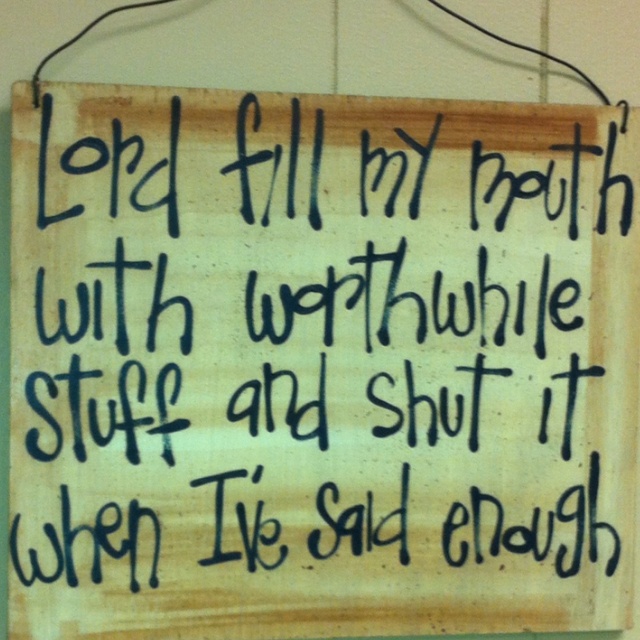 Lord fill my mouth
with worthwhile
stuff and shut it
when I've said enough